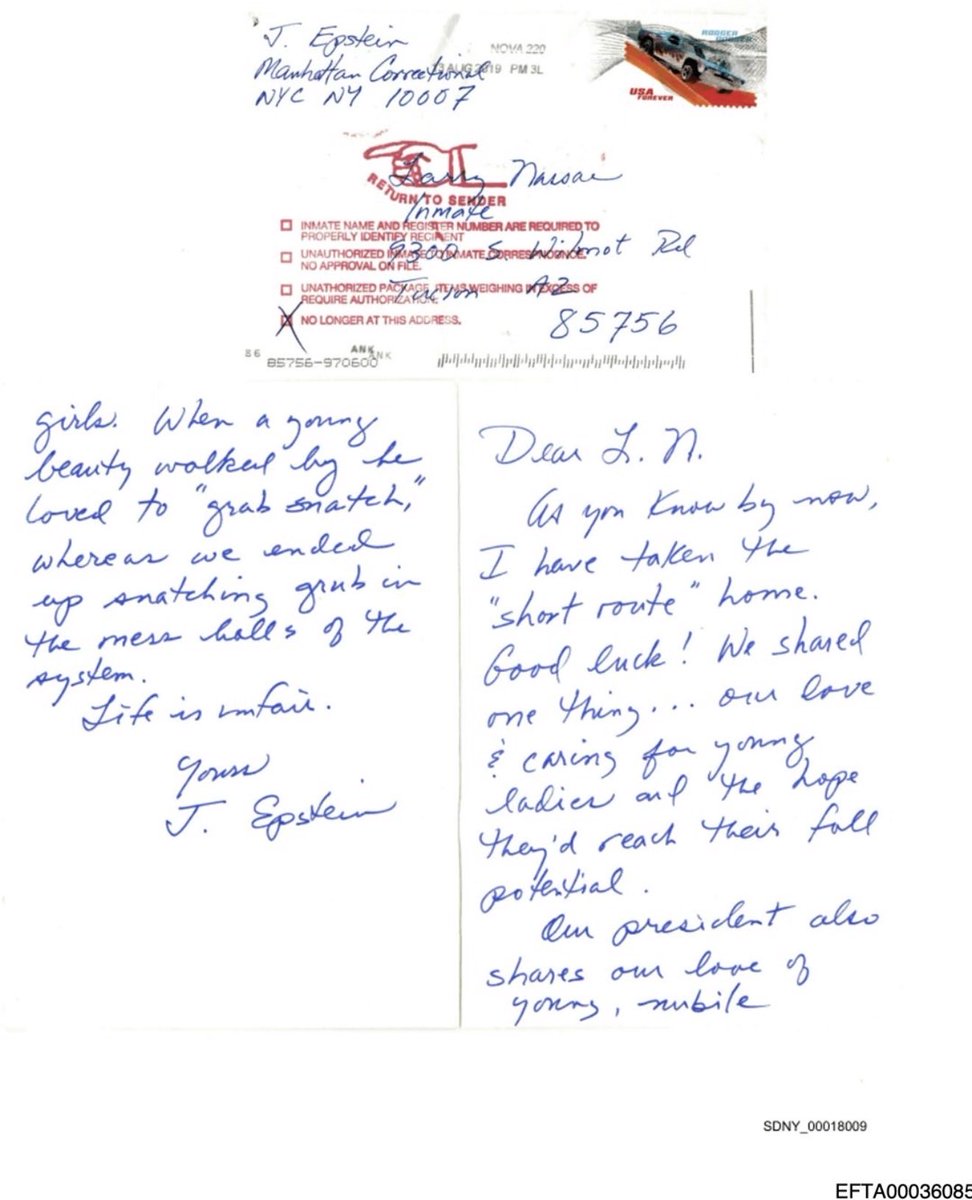 J. Epstein
Manhattan Correctional
NYC NY 10007
NOVA 220
AUG 2019 PM 3L
USA
FOREVER
Larry Nassar
RETURN TO SENDER
Inmate
INMATE NAME AND REGISTER NUMBER ARE REQUIRED TO
PROPERLY IDENTIFY RECIPIENT
9300 S. Wilmot Rd
UNAUTHORIZED INMATE TO INMATE CORRESPONDENCE.
NO APPROVAL ON FILE.
Tucson AZ
UNATHORIZED PACKAGE, ITEMS WEIGHING IN EXCESS OF
REQUIRE AUTHORIZATION.
NO LONGER AT THIS ADDRESS.
85756
86
ANK
ANK
85756-970600
Dear L. N.
As you know by now,
I have taken the
"short route" home.
Good luck! We shared
one thing... our love
& caring for young
ladies and the hope
they'd reach their full
potential.
Our president also
shares our love of
young, nubile
girls. When a young
beauty walked by he
loved to "grab snatch,"
whereas we ended
up snatching grub in
the mess halls of the
system.
Life is unfair.
Yours
J. Epstein
SDNY_00018009
EFTA00036085